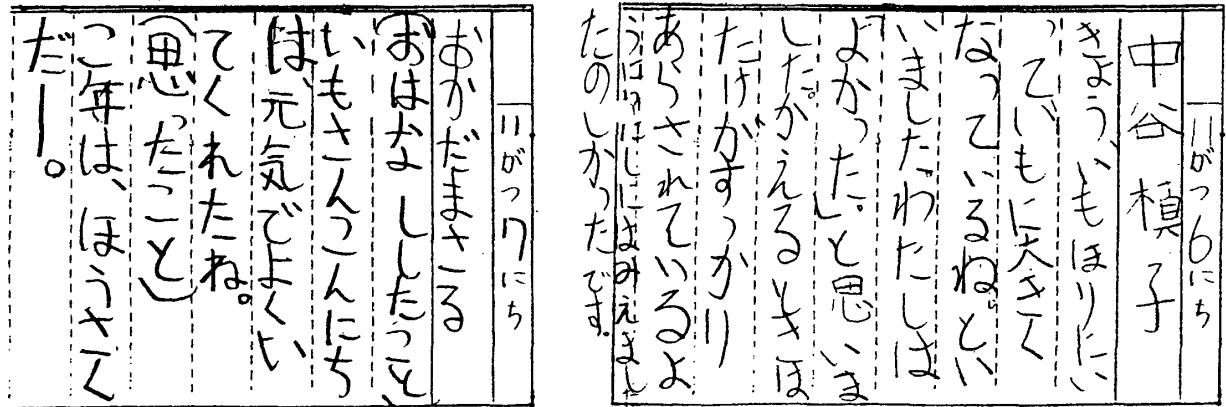 11がつ6にち
中谷槙子
きょう、いもほりにい
って、いもに大きく
なっているね。とい
いました。わたしは
よかった。」と思いま
した。かえるときほ
たけがすっかり
あらされているよ
はみえまし
たのしかったです。
11がつ7にち
おかだまさる
(おはなししたこと)
いもさんこんにち
は、元気でよくい
てくれたね。
(思ったこと)
こ年は、ほうさく
だー。